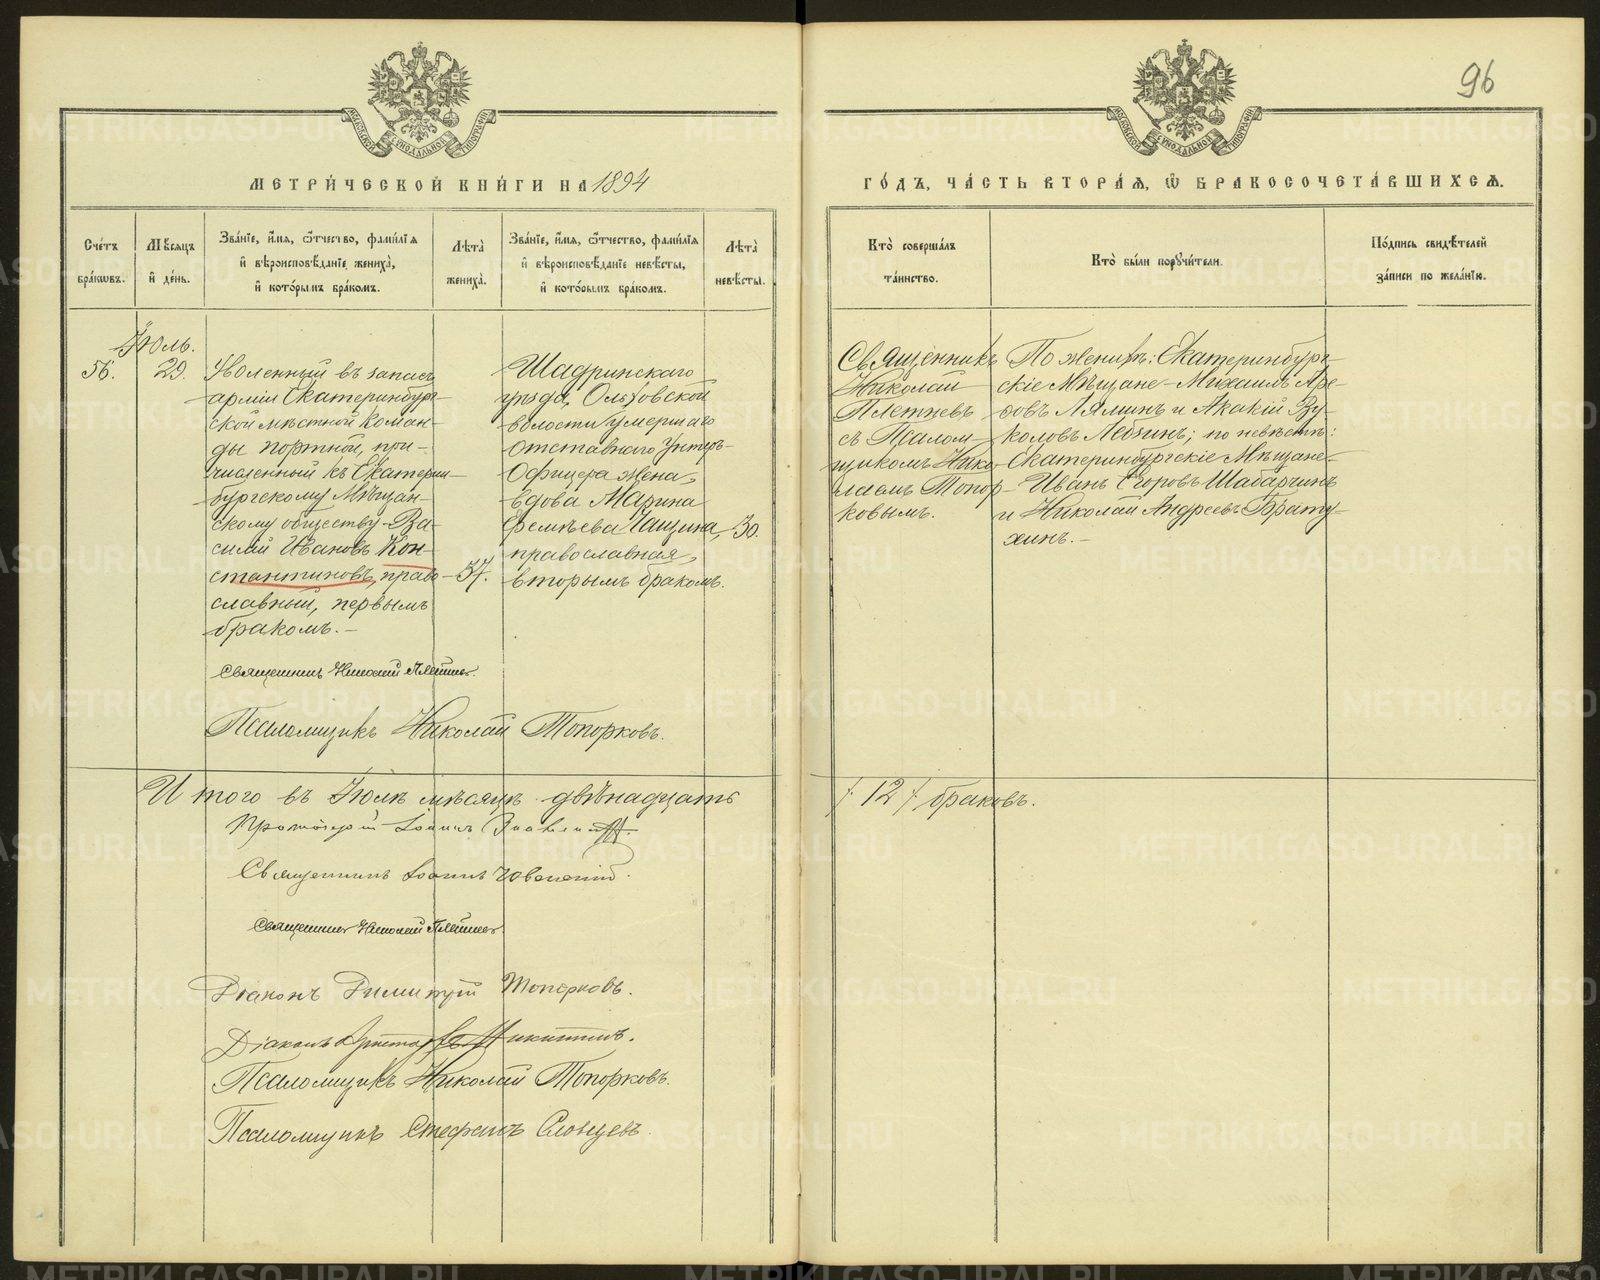 96
МЕТРИ́ЧЕСКОЙ КНИ́ГИ НА 1894
ГО́ДЪ, ЧА́СТЬ ВТОРА́Я, Ѡ БРАКОСОЧЕТА́ВШИХСЯ.
МОСКОВСКОЙ СѴНОДАЛЬНОЙ ТИПОГРАФІИ
МОСКОВСКОЙ СѴНОДАЛЬНОЙ ТИПОГРАФІИ
Сче́тъ
бра́ковъ.
Мѣ́сяцъ
и҆ де́нь.
Зва́нїе, и҆́мя, ѻ҆́тчество, фами́лїя
и҆ вѣроисповѣ́данїе жениха̀,
и҆ кото́рымъ бра́комъ.
Лѣта̀
жениха̀.
Зва́нїе, и҆́мя, ѻ҆́тчество, фами́лїя
и҆ вѣроисповѣ́данїе невѣ́сты,
и҆ кото́рымъ бра́комъ.
Лѣта̀
невѣ́сты.
Кто̀ соверша́лъ
та́инство.
Кто̀ бы́ли поручи́тели.
По́дпись свидѣ́телей
за́писи по жела́нїю.
Іюль.
56.
29.
Уволенный въ запасъ
арміи Екатеринбург-
ской мѣстной Коман-
ды портной, при-
численный къ Екатерин-
бургскому Мѣщан-
скому обществу Ва-
силій Ивановъ Кон-
стантиновъ, право-
славный, первымъ
бракомъ.-
37.
Шадринскаго
уѣзда, Ольховской
волости умершаго
отставного Унтеръ-
Офицера жена,
вдова Марина
Еремѣева Чащина,
православная,
вторымъ бракомъ.
30.
Священникъ
Николай
Плетневъ
съ Псалом-
щикомъ Нико-
лаемъ Топор-
ковымъ.
По женихѣ: Екатеринбург-
скіе Мѣщане Михаилъ Аре-
фовъ Лялинъ и Акакій Ву-
коловъ Лебзинъ; по невѣстѣ:
Екатеринбургскіе Мѣщане-
Иванъ Егоровъ Шабарчинъ
и Николай Андреевъ Брату-
хинъ.-
Священникъ Николай Плетневъ.
Псаломщикъ Николай Топорковъ.
Итого въ Іюлѣ мѣсяцѣ двѣнадцать
/12/ браковъ.
Протоіерей Іоаннъ
Священникъ Іоаннъ
Священникъ Николай Плетневъ
Діаконъ Димитрій Топорковъ.
Діаконъ Никитинъ.
Псаломщикъ Николай Топорковъ.
Псаломщикъ Стефанъ Словцевъ.
METRIKI.GASO-URAL.RU